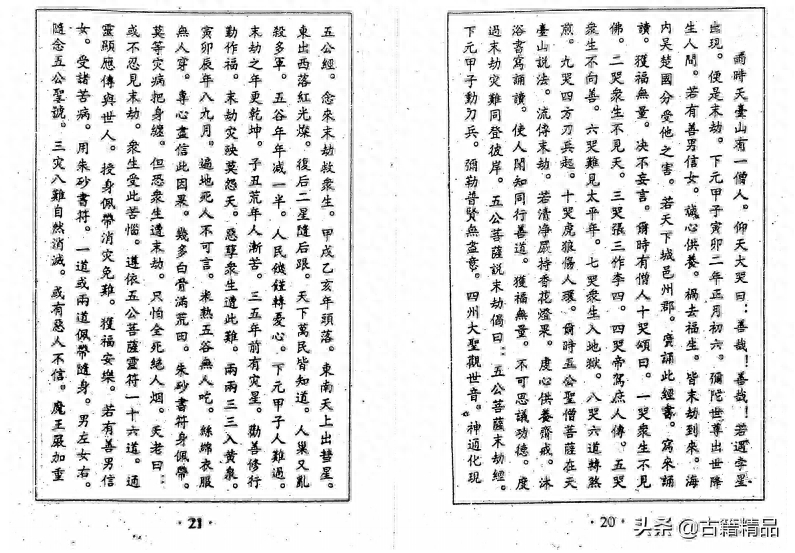 爾時天臺山有一僧人。仰天大哭曰：善哉！善哉！若遇孛星
出現。便是末劫。下元甲子寅卯二年正月初六。彌陀世尊出世降
生人間。若有善男信女。誠心供養。禍去福生。皆末劫到來。海
內吴楚國分受他之害。若天下城邑州郡。誦此經書。寫來誦
讀。獲福無量。决不妄言。爾時有僧人十哭頌曰。一哭衆生不見
佛。二哭衆生不見天。三哭張三作李四。四哭帝駕庶人傳。五哭
衆生不向善。六哭難見太平年。七哭衆生入地獄。八哭六道轉煞
煎。九哭四方刀兵起。十哭虎狼傷人環。爾時五公聖僧菩薩在天
臺山說法。流傳末劫。若清淨嚴持香花燈果。虔心供養齋戒。沐
浴書寫誦讀。使人聞知同行善道。獲福無量。不可思議功德。度
過末劫灾難同登彼岸。五公菩薩說末劫偈曰：五公菩薩末劫經。
下元甲子動刀兵。彌勒普賢無盡意。四州大聖觀世音。神通化現
·20·
五公經。念來末劫救衆生。甲戌乙亥年頭落。東南天上出彗星。
東出西落紅光燦。復后二星隨后跟。天下萬民皆知道。人巢又亂
殺多軍。五谷年年減一半。人民饑饉轉憂心。下元甲子人難過。
末劫之年更乾坤。子丑荒年人漸苦。三五年前有灾星。勸善修行
勤作福。末劫灾殃莫怨天。惡孽衆生遭此難。兩兩三三入黄泉。
寅卯辰年八九月。遍地死人不可言。米熟五谷無人吃。絲綿衣服
無人穿。專心盡信此因果。幾多白骨滿荒田。朱砂書符身佩帶。
莫等灾病把身纏。但恐衆生遭末劫。只怕全死絶人烟。天老曰：
或不忍見末劫。衆生受此苦惱。遵依五公菩薩靈符一十六道。通
靈顯應傳與世人。授身佩帶消灾免難。獲福安樂。若有善男信
女。受諸苦病。用朱砂書符。一道或兩道佩帶隨身。男左女右。
隨念五公聖號。三灾八難自然消滅。或有惡人不信。魔王嚴加重
·21·
头条@古籍精品